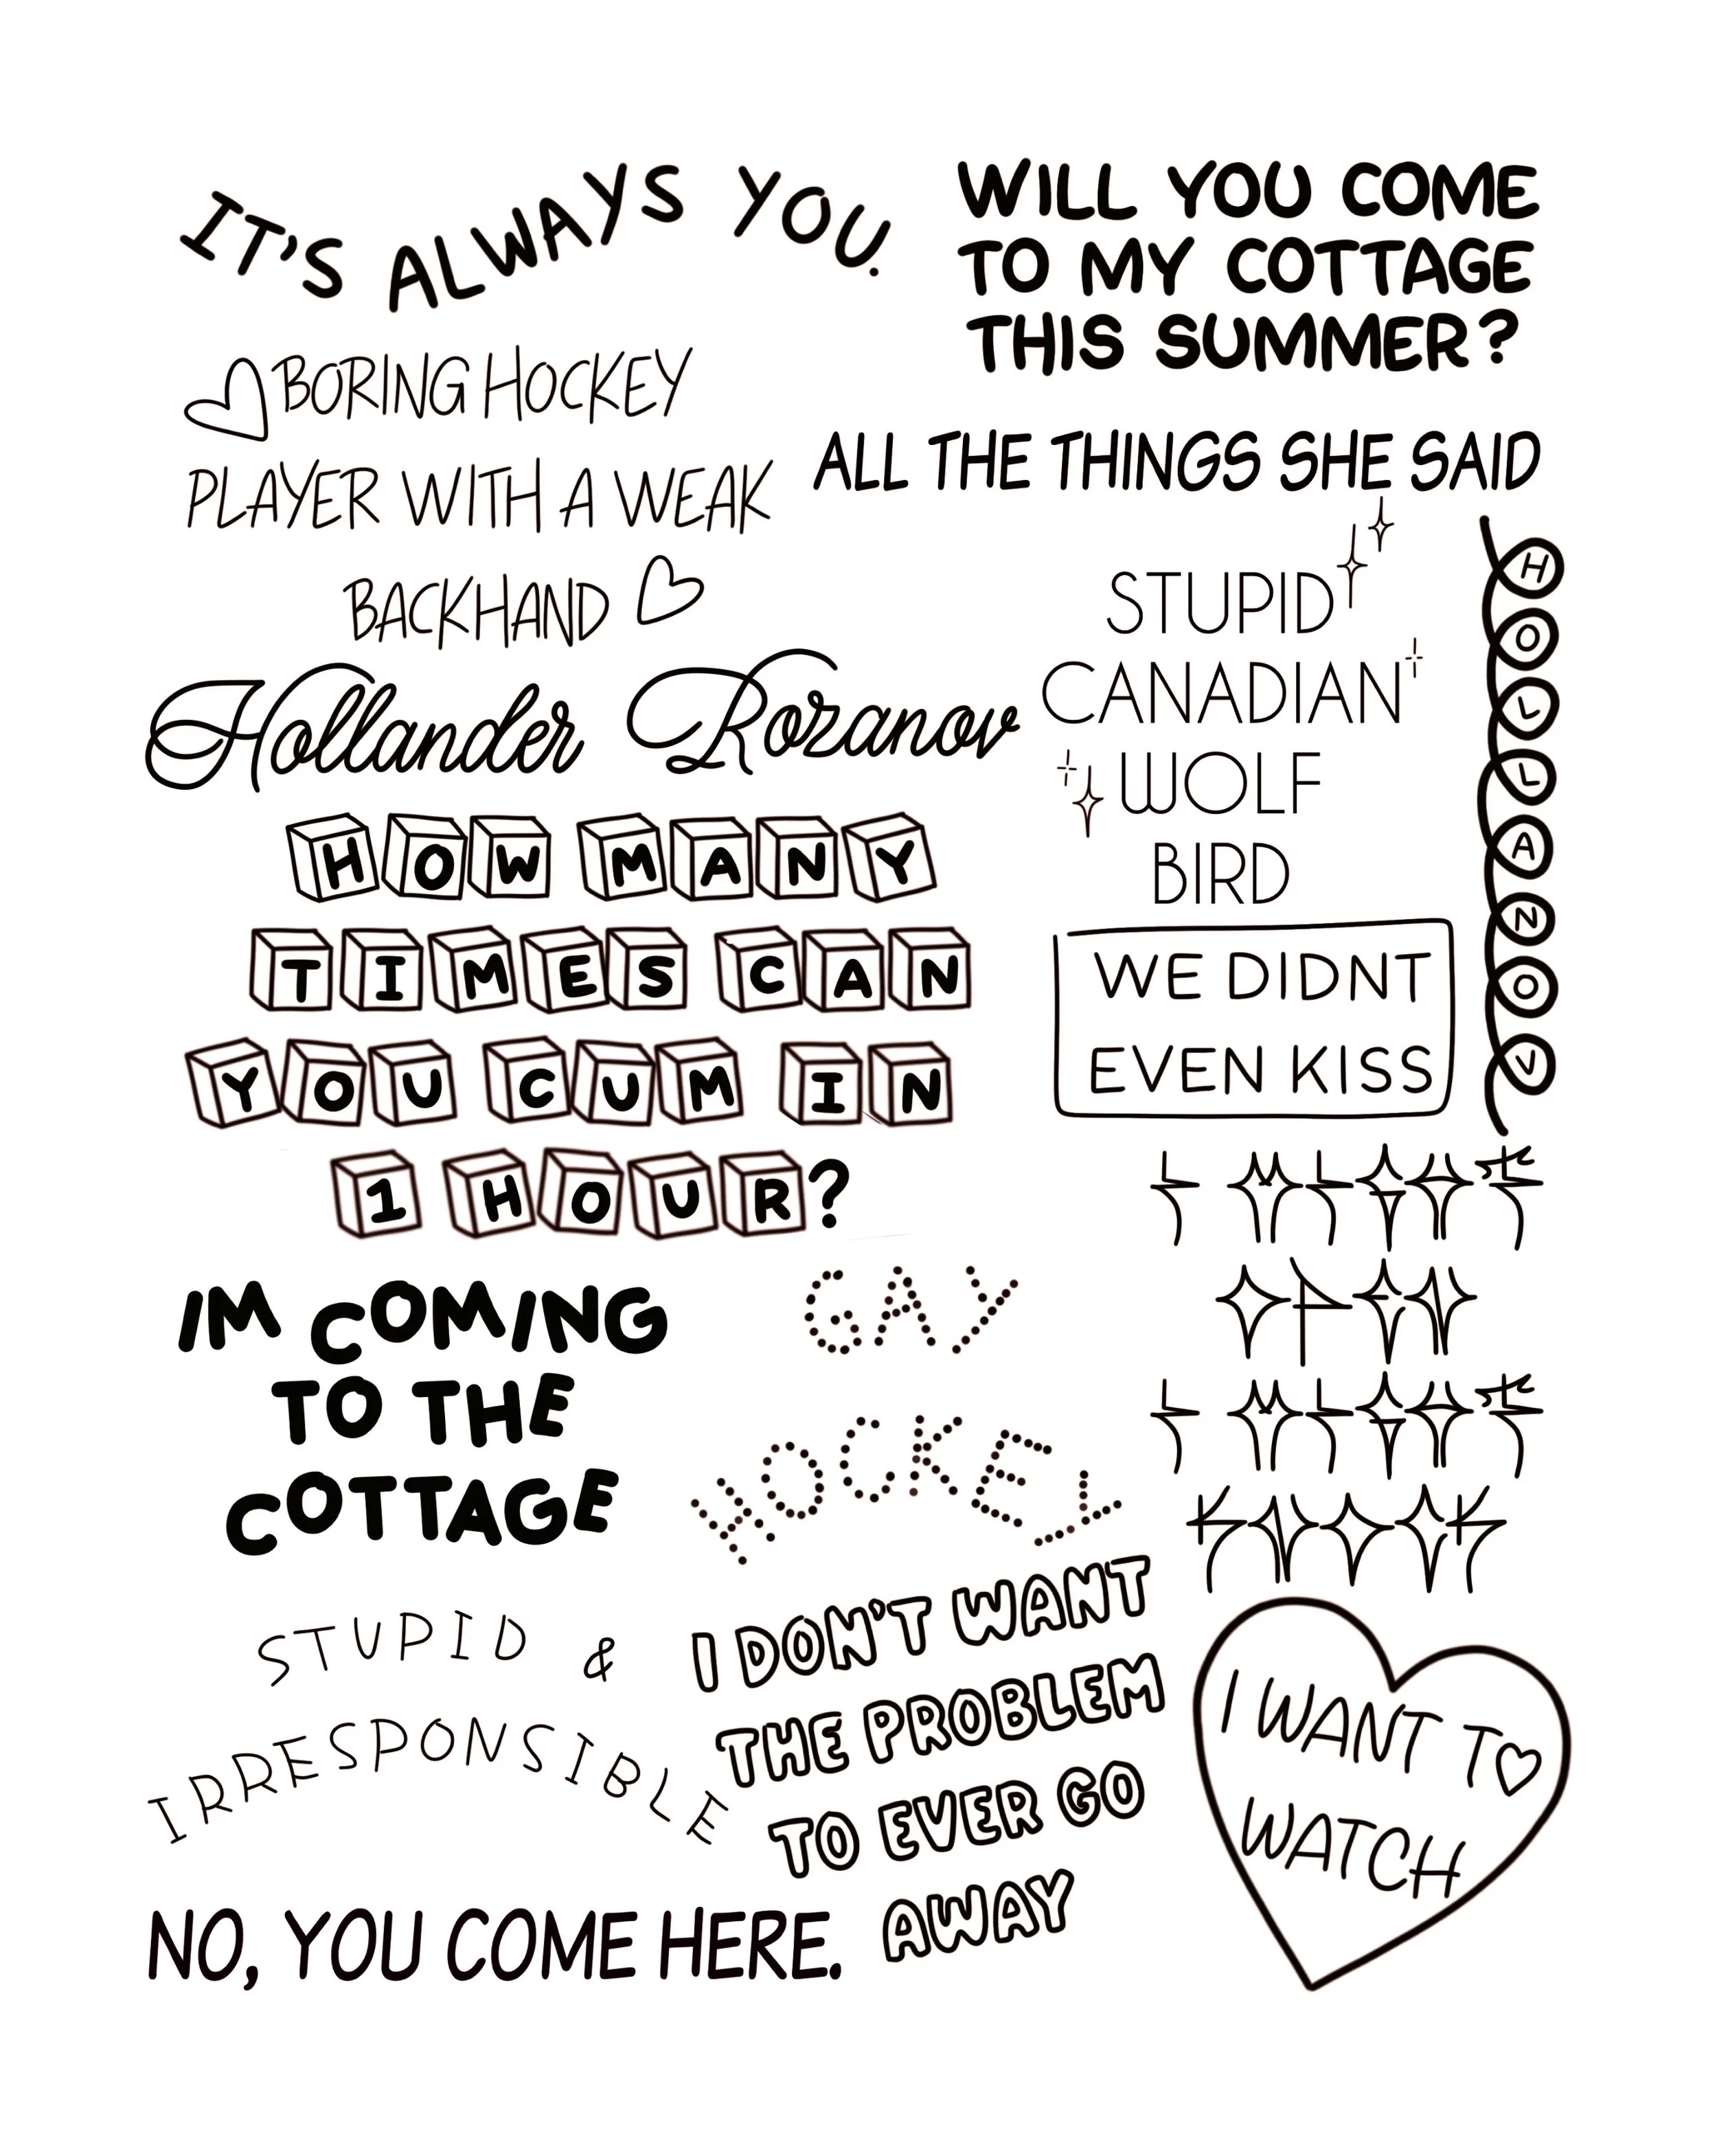 IT'S ALWAYS YOU.
WILL YOU COME
TO MY COTTAGE
THIS SUMMER?
♡BORING HOCKEY
PLAYER WITH A WEAK
BACKHAND ♡
ALL THE THINGS SHE SAID
STUPID
CANADIAN
WOLF
BIRD
HOLLANOV
Hollander Rozanov
HOW MANY
TIMES CAN
YOU CUM IN
1 HOUR?
WE DIDNT
EVEN KISS
IM COMING
TO THE
COTTAGE
GAY
HOCKEY
STUPID &
IRRESPONSIBLE
I DON'T WANT
THE PROBLEM
TO EVER GO
AWAY
I WANT T♡
WATCH
NO, YOU COME HERE.